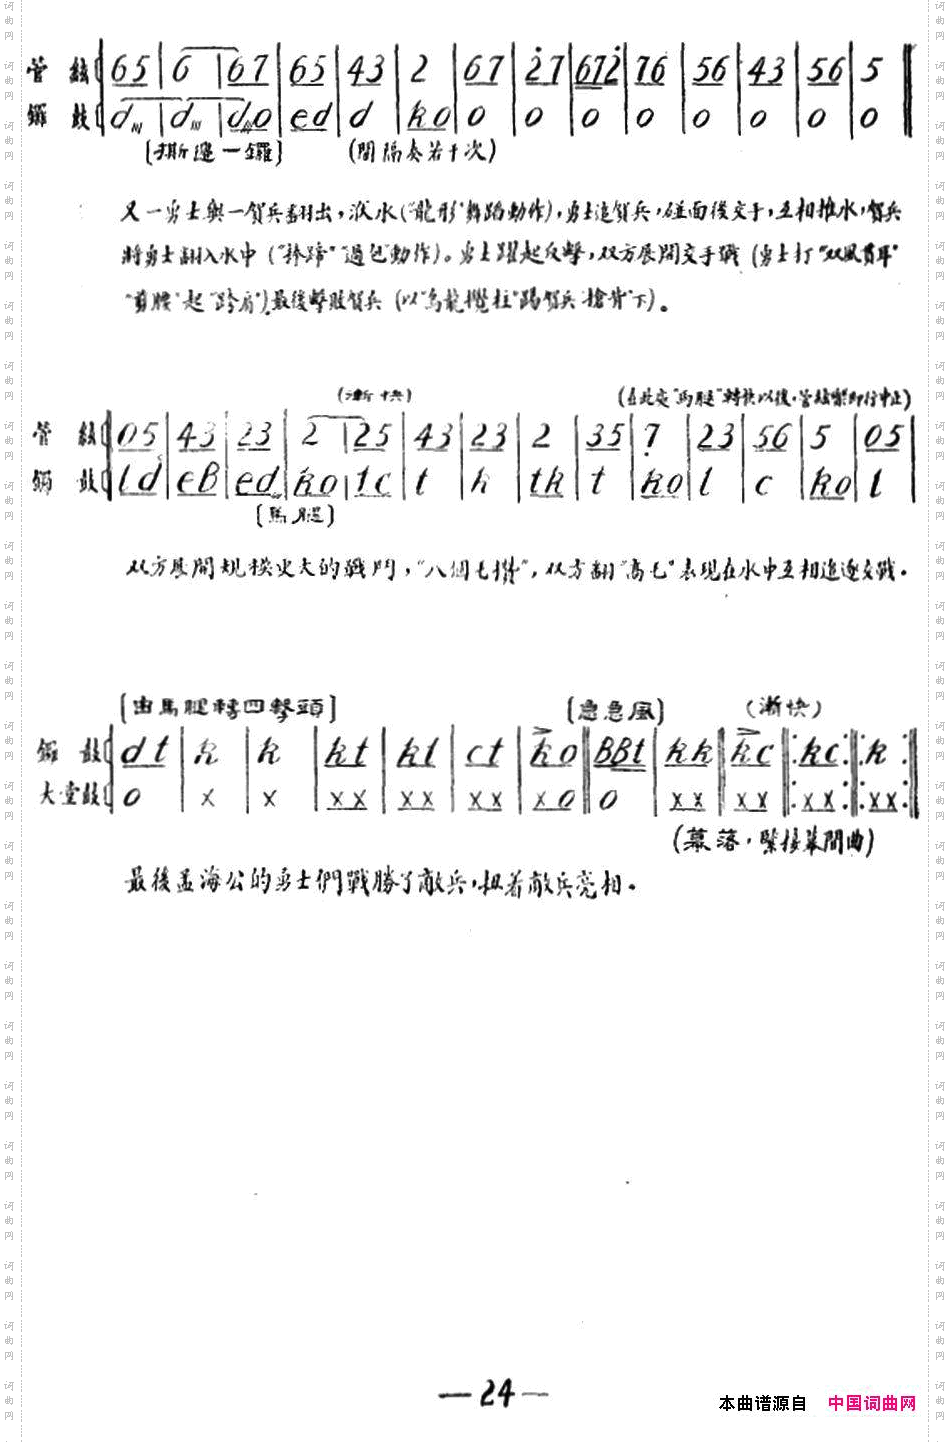 管絃 65 | 6 | 67 | 65 | 43 | 2 | 67 | 27 | 672 | 76 | 56 | 43 | 56 | 5
鑼鼓 d | d | do | ed | d | ko | o | o | o | o | o | o | o | o
[撕邊一鑼] (間隔奏若干次)
又一勇士與一賀兵翻出,泅水("龍形"舞蹈動作),勇士追賀兵,碰面後交手,互相推水,賀兵
將勇士翻入水中("摔蹄""過包"動作)。勇士躍起反擊,双方展開交手戰(勇士打"双風貫耳"
"剪腰"起"跨肩")最後擊敗賀兵(以"烏龍攪柱"踢賀兵"搶背"下)。
(漸快) (在此處"馬腿"轉快以後,管絃樂即行中止)
管絃 05 | 43 | 23 | 2 | 25 | 43 | 23 | 2 | 35 | 7 | 23 | 56 | 5 | 05
鑼鼓 ld | eB | ed | ko | tc | t | k | tk | t | ko | l | c | ko | l
[馬腿]
双方展開規模更大的戰鬥,"八個毛攢",双方翻"高毛"表現在水中互相追逐交戰.
[由馬腿轉四擊頭] [急急風] (漸快)
鑼鼓 dt | k | k | kt | kl | ct | ko || BBt | kk || kc ||: kc :||: k :||
大堂鼓 o | x | x | xx | xx | xx | xo || o | xx || xx ||: xx :||: xx :||
(幕落,緊接幕間曲)
最後孟海公的勇士們戰勝了敵兵,扭着敵兵亮相.
—24—
本曲谱源自 中国词曲网